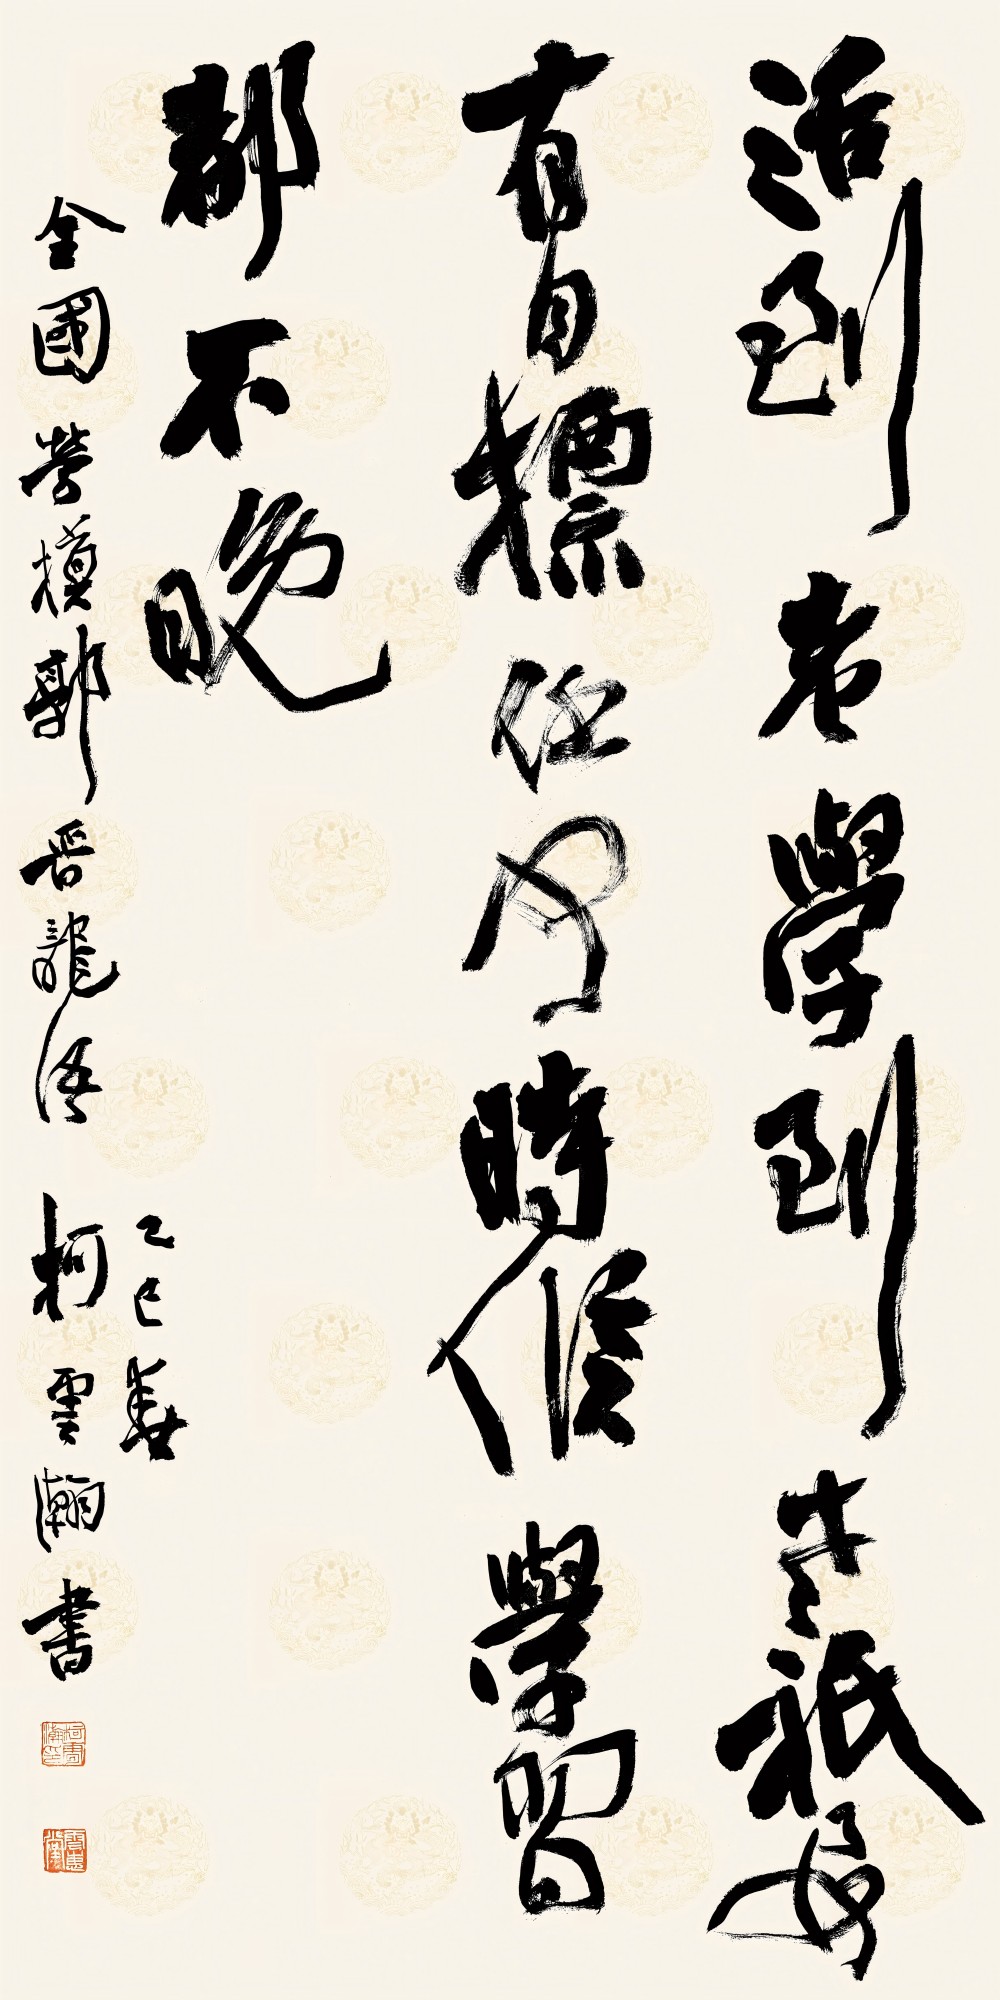 活到老學到老祇要
有目標任何時候學習
都不晚
全國勞模郭晉龍語
乙巳春
柯雲瀚書